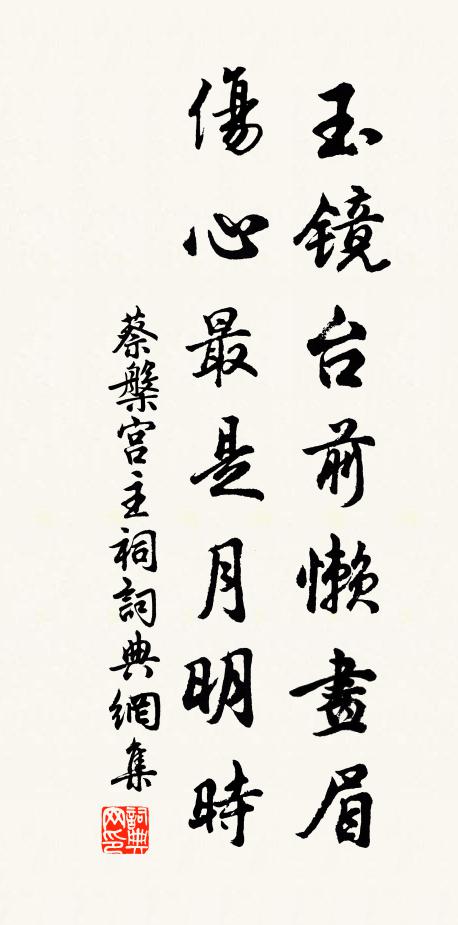 玉鏡台前懶畫眉
傷心最是月明時
蔡槃宮主祠詞典網集
詞典网印